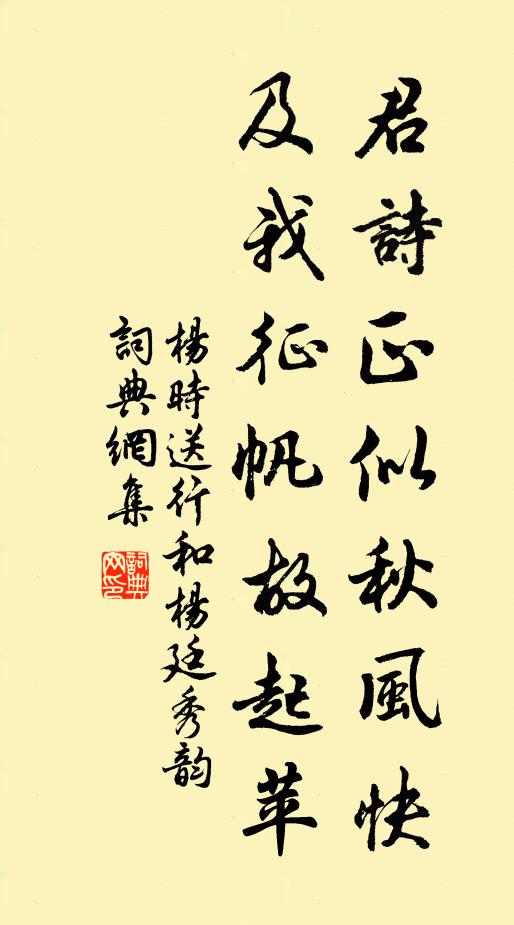 君詩正似秋風快
及我征帆故起苹
楊時送行和楊廷秀韵
詞典網集
詞典
网印